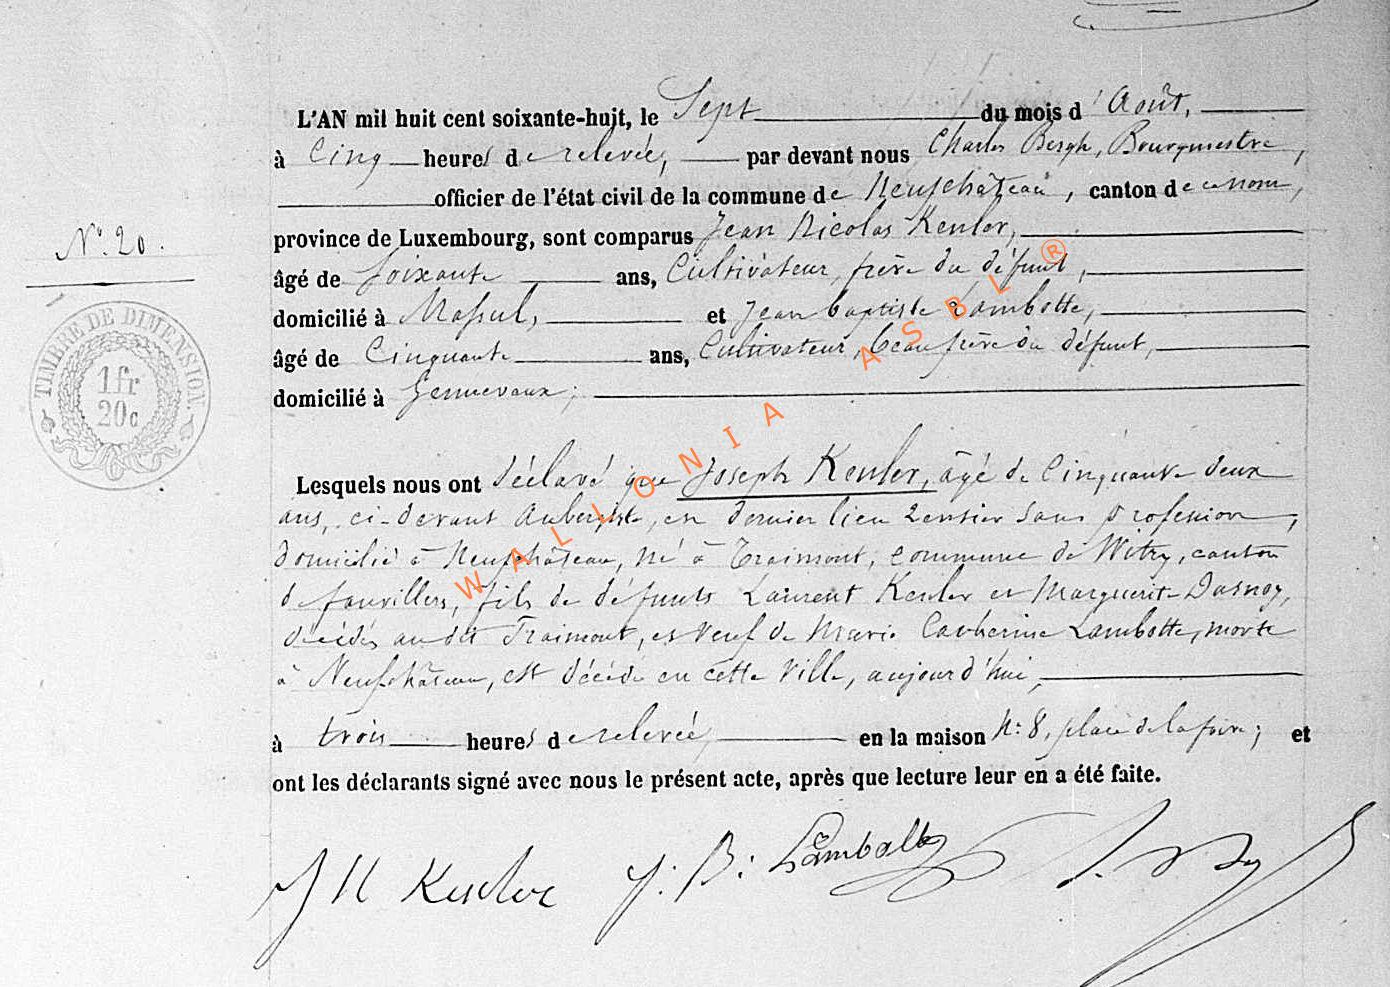 L'AN mil huit cent soixante-huit, le Sept du mois d'Août,
à Cinq heures de relevée, par devant nous Charles Bergh, Bourgmestre,
officier de l'état civil de la commune de Neufchâteau, canton de ce nom,
N° 20.
province de Luxembourg, sont comparus Jean Nicolas Kesler,
âgé de soixante ans, Cultivateur, frère du défunt,
domicilié à Massul, et Jean baptiste Lambotte,
âgé de Cinquante ans, Cultivateur, beau frère du défunt,
domicilié à Gennevaux;
TIMBRE DE DIMENSION.
1 fr
20 c
Lesquels nous ont déclaré que Joseph Kesler, âgé de Cinquante deux
ans, ci-devant Aubergiste, en dernier lieu Rentier sans profession,
domicilié à Neufchâteau, né à Traimont, commune de Witry, canton
de fauvillers, fils de défunts Laurent Kesler et Marguerite Dasnoy,
décédés audit Traimont, et veuf de Marie Catherine Lambotte, morte
à Neufchâteau, est décédé en cette Ville, aujourd'hui,
à trois heures de relevée, en la maison N° 8, place de la foire; et
ont les déclarants signé avec nous le présent acte, après que lecture leur en a été faite.
J N Kesler J: B: Lambotte
WALLONIA ASBL ®